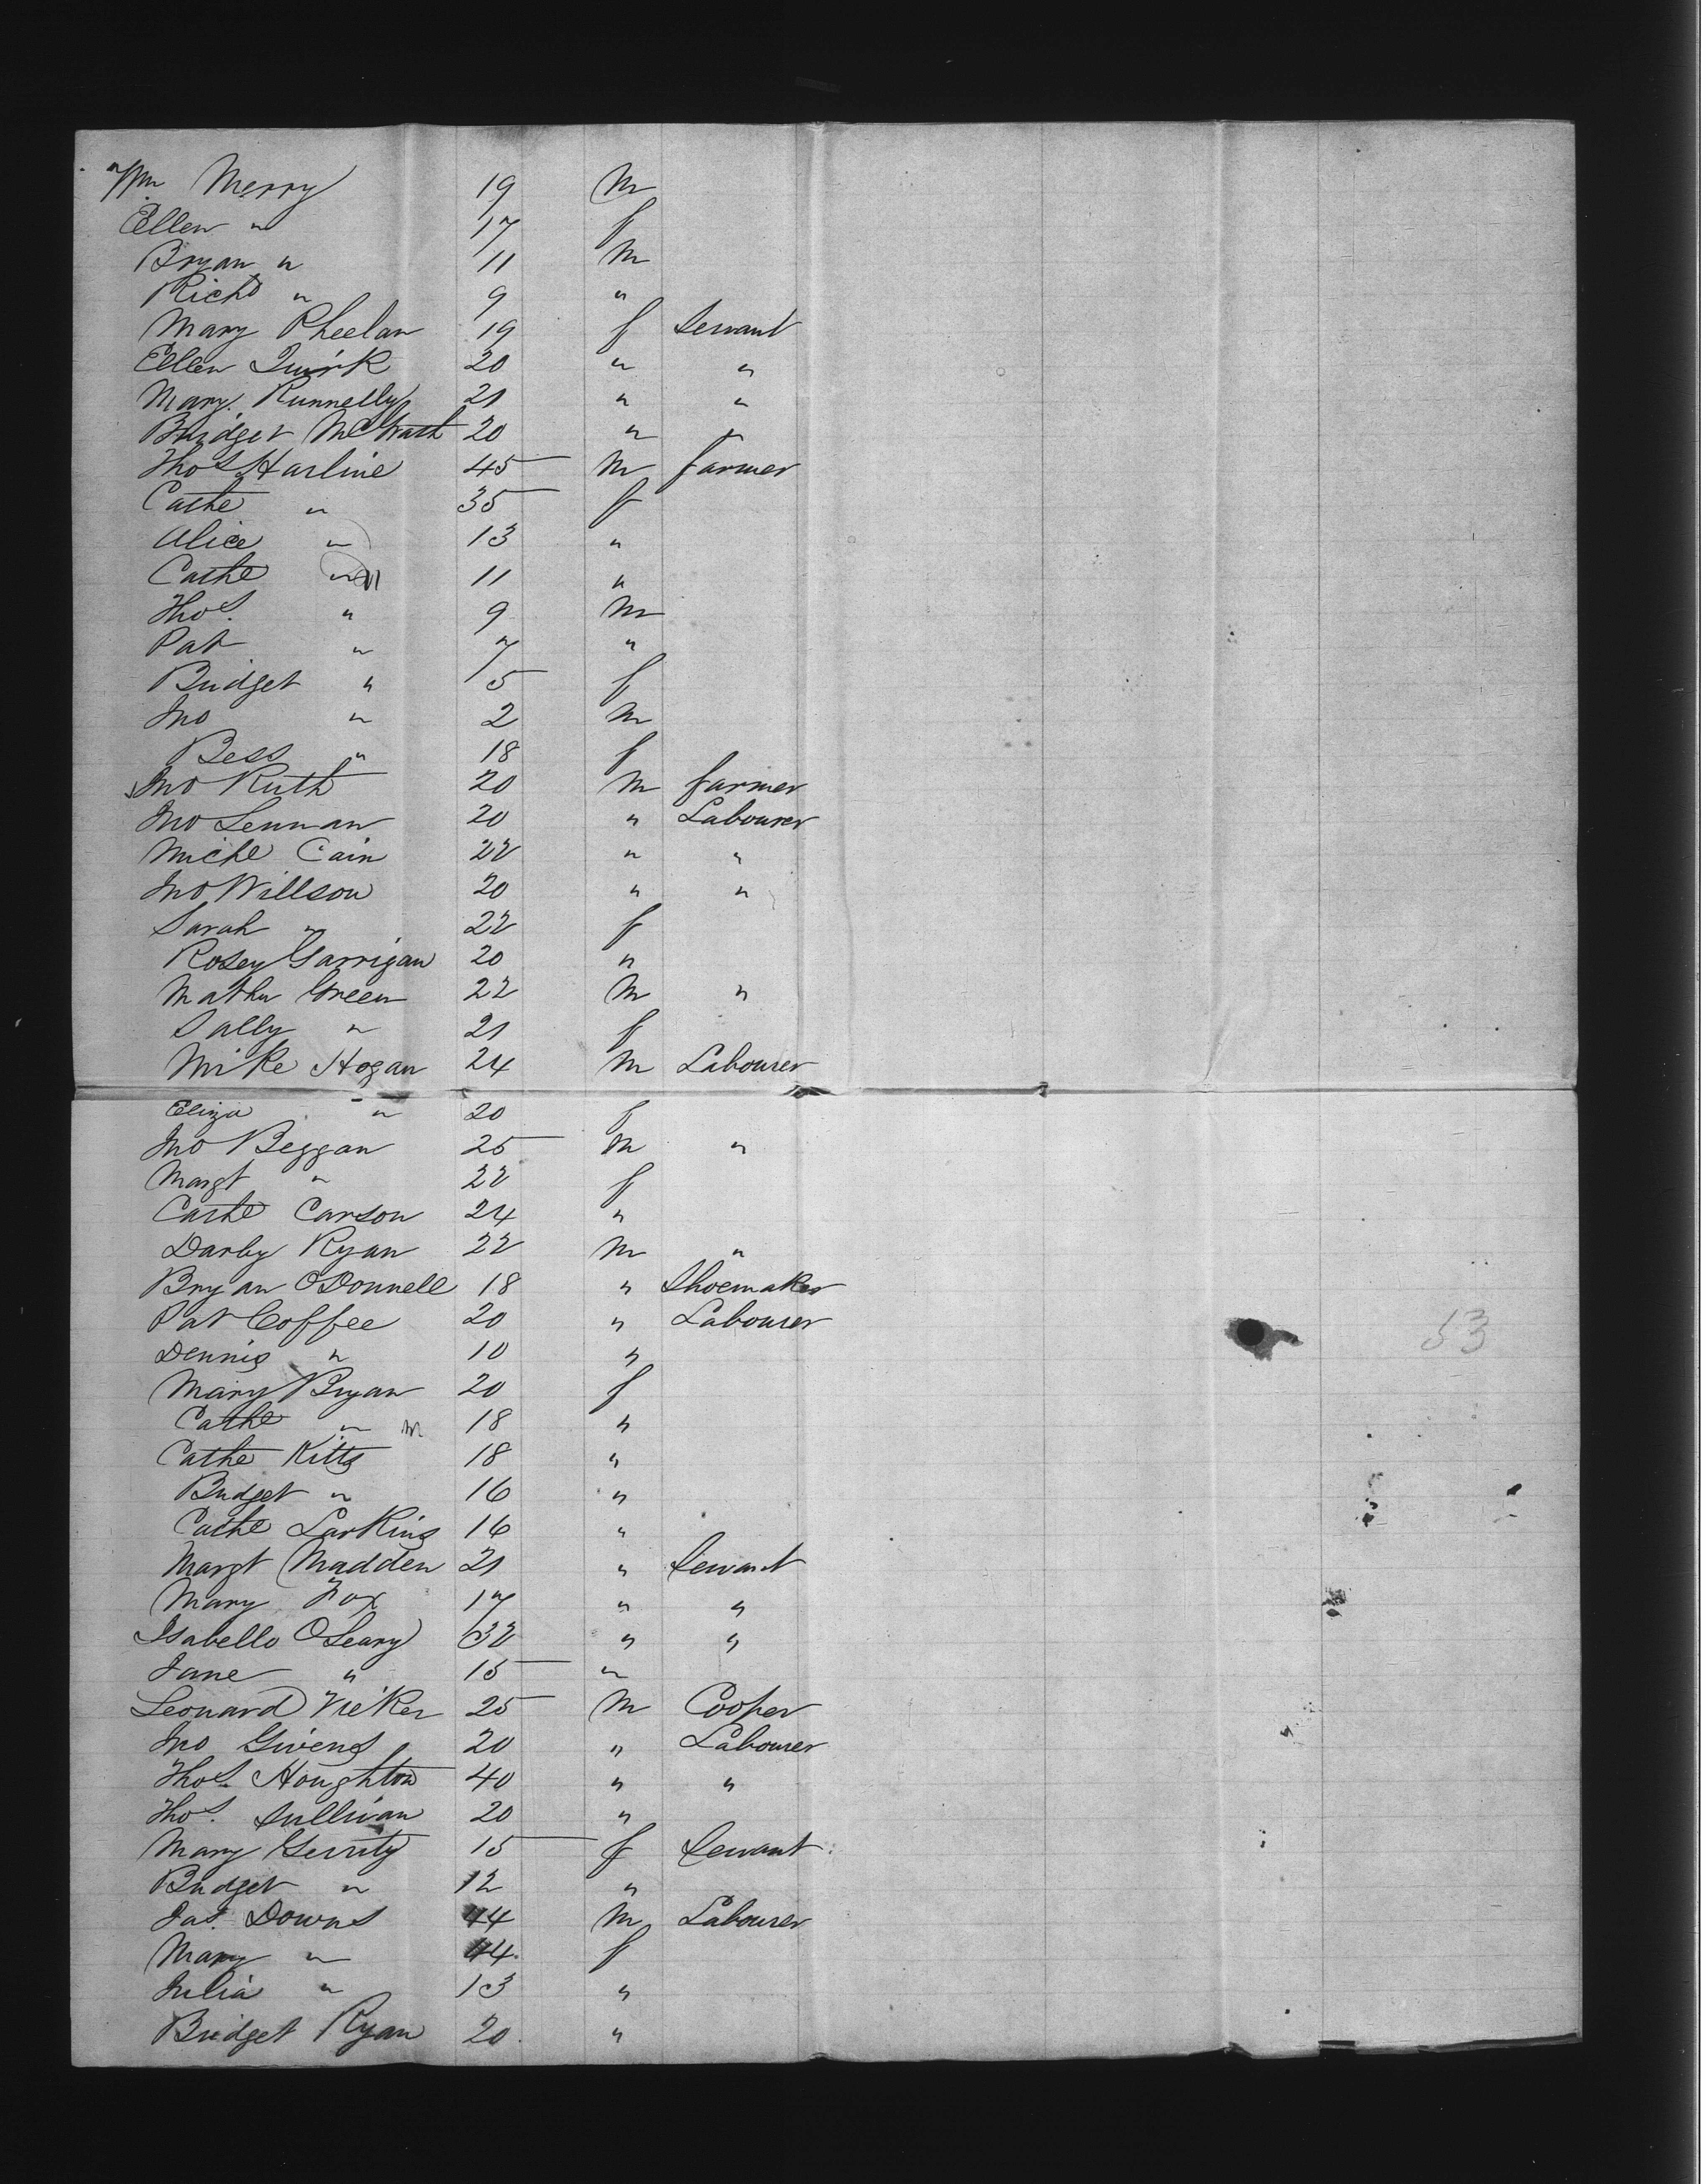 Wm Merry 19 m
Ellen " 17 f
Bryan " 11 m
Richd " 9 "
Mary Pheelan 19 f Servant
Ellen Quirk 20 " "
Mary Runnelly 21 " "
Bridget McGrath 20 " "
Thos Harline 45 m farmer
Cathe " 35 f
Alice " 13 "
Cathe " 11 "
Thos. " 9 m
Pat " 7 "
Bridget " 5 f
Jno " 2 m
Bess " 18 f
Jno Ruth 20 m farmer
Jno Lennan 20 " Labourer
Michl Cain 22 " "
Jno Willson 20 " "
Sarah " 22 f
Rosey Garrigan 20 "
Mathw Green 22 m "
Sally " 21 f
Mike Hogan 24 m Labourer
Eliza " 20 f
Jno Beggan 25 m "
Margt " 22 f
Cathe Carson 24 "
Darby Ryan 22 m "
Bryan ODonnell 18 " Shoemaker
Pat Coffee 20 " Labourer
53
Dennis " 10 "
Mary Bryan 20 f
Cathe " 18 "
Cathe Kitts 18 "
Bridget " 16 "
Cathe Larkins 16 "
Margt Madden 21 " Servant
Mary Fox 17 " "
Isabello OLeary 32 " "
Jane " 15 "
Leonard 25 m Cooper
Jno Givens 20 " Labourer
Thos. Houghton 40 " "
Thos. Sullivan 20 "
Mary Gerrity 15 f Servant
Bridget " 12 "
Jas. Downs 44 m Labourer
Mary " 44 f
Julia " 13 "
Bridget Ryan 20 "